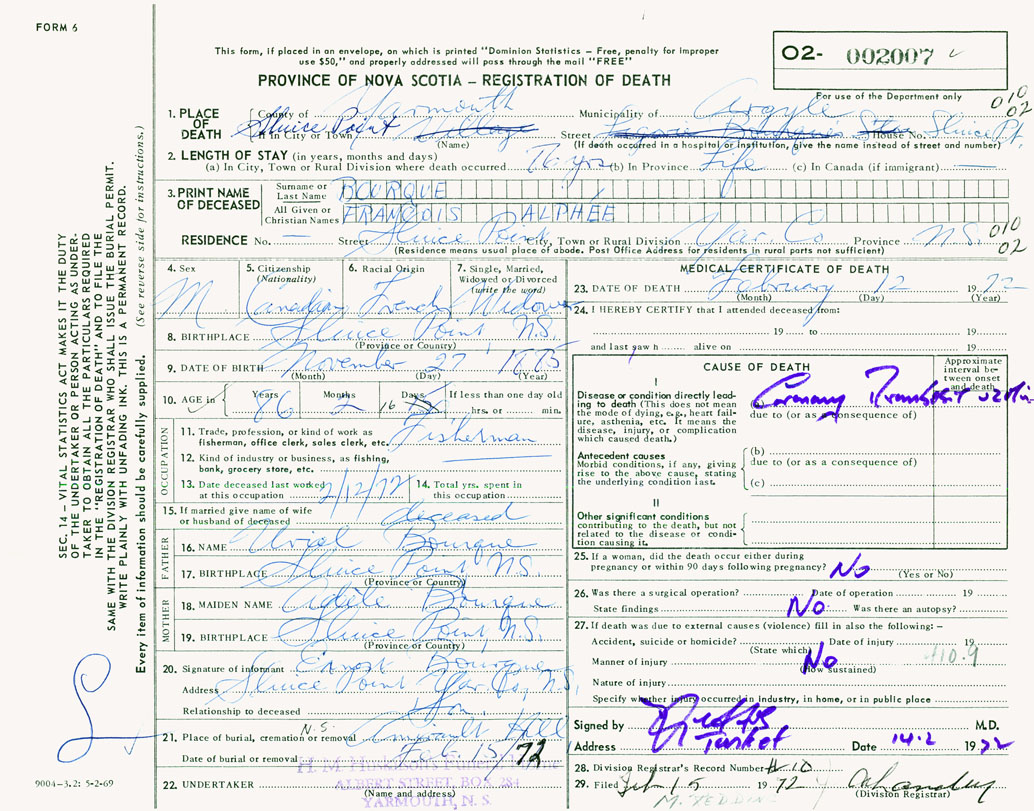 FORM 6
This form, if placed in an envelope, on which is printed "Dominion Statistics – Free, penalty for improper
use $50," and properly addressed will pass through the mail "FREE"
O2- 002007
PROVINCE OF NOVA SCOTIA – REGISTRATION OF DEATH
For use of the Department only
010
02
1. PLACE OF DEATH
County of Yarmouth Municipality of Argyle
Sluice Point or in City or Town Village Street House No. Sluice Pt.
(Name) (If death occurred in a hospital or institution, give the name instead of street and number)
2. LENGTH OF STAY (in years, months and days)
(a) In City, Town or Rural Division where death occurred (b) In Province Life (c) In Canada (if immigrant) —
3. PRINT NAME OF DECEASED
Surname or Last Name BOURQUE
All Given or Christian Names FRANÇOIS ALPHÉE
RESIDENCE No. — Street Sluice Point City, Town or Rural Division Yar. Co Province N.S.
010
02
(Residence means usual place of abode. Post Office Address for residents in rural parts not sufficient)
4. Sex M
5. Citizenship (Nationality) Canadian
6. Racial Origin French
7. Single, Married, Widowed or Divorced (write the word) Widower
8. BIRTHPLACE Sluice Point, N.S.
(Province or Country)
9. DATE OF BIRTH November 27, 1885
(Month) (Day) (Year)
10. AGE in Years 86 Months 2 Days 16 If less than one day old
hrs. or min.
OCCUPATION
11. Trade, profession, or kind of work as
fisherman, office clerk, sales clerk, etc. Fisherman
12. Kind of industry or business, as fishing,
bank, grocery store, etc.
13. Date deceased last worked
at this occupation 2/12/72
14. Total yrs. spent in
this occupation
15. If married give name of wife
or husband of deceased deceased
FATHER
16. NAME Bourque
17. BIRTHPLACE Sluice Point N.S.
(Province or Country)
MOTHER
18. MAIDEN NAME Bourque
19. BIRTHPLACE Sluice Point, N.S.
(Province or Country)
20. Signature of informant Ernest Bourque
Address Sluice Point Yar. Co., N.S.
Relationship to deceased Son
N.S.
21. Place of burial, cremation or removal Hill
Date of burial or removal Feb. 15/72
22. UNDERTAKER
ALBERT STREET, BOX 284
(Name and address)
YARMOUTH, N. S.
MEDICAL CERTIFICATE OF DEATH
23. DATE OF DEATH February 12 1972
(Month) (Day) (Year)
24. I HEREBY CERTIFY that I attended deceased from:
19 to 19
and last saw h alive on 19
CAUSE OF DEATH
Approximate interval between onset and death
I
Disease or condition directly leading to death (This does not mean
the mode of dying, e.g., heart failure, asthenia, etc. It means the
disease, injury, or complication
which caused death.)
(a) Coronary
due to (or as a consequence of)
Antecedent causes
Morbid conditions, if any, giving
rise to the above cause, stating
the underlying condition last.
(b)
due to (or as a consequence of)
(c)
II
Other significant conditions
contributing to the death, but not
related to the disease or condition causing it.
25. If a woman, did the death occur either during
pregnancy or within 90 days following pregnancy? No
(Yes or No)
26. Was there a surgical operation? Date of operation 19
State findings No Was there an autopsy?
27. If death was due to external causes (violence) fill in also the following: –
Accident, suicide or homicide? Date of injury 19
(State which)
Manner of injury No 410.9
(How sustained)
Nature of injury
Specify whether injury occurred in industry, in home, or in public place
Signed by M.D.
Address Tusket Date 14.2 1972
28. Division Registrar's Record Number # 10
29. Filed Feb 15 1972
(Division Registrar)
9004-3.2: 5-2-69
SEC. 14 – VITAL STATISTICS ACT MAKES IT THE DUTY
OF THE UNDERTAKER OR PERSON ACTING AS UNDERTAKER TO OBTAIN ALL THE PARTICULARS REQUIRED
IN THE "REGISTRATION OF DEATH" AND TO FILE THE
SAME WITH THE DIVISION REGISTRAR WHO SHALL ISSUE THE BURIAL PERMIT.
WRITE PLAINLY WITH UNFADING INK. THIS IS A PERMANENT RECORD.
Every item of information should be carefully supplied. (See reverse side for instructions.)